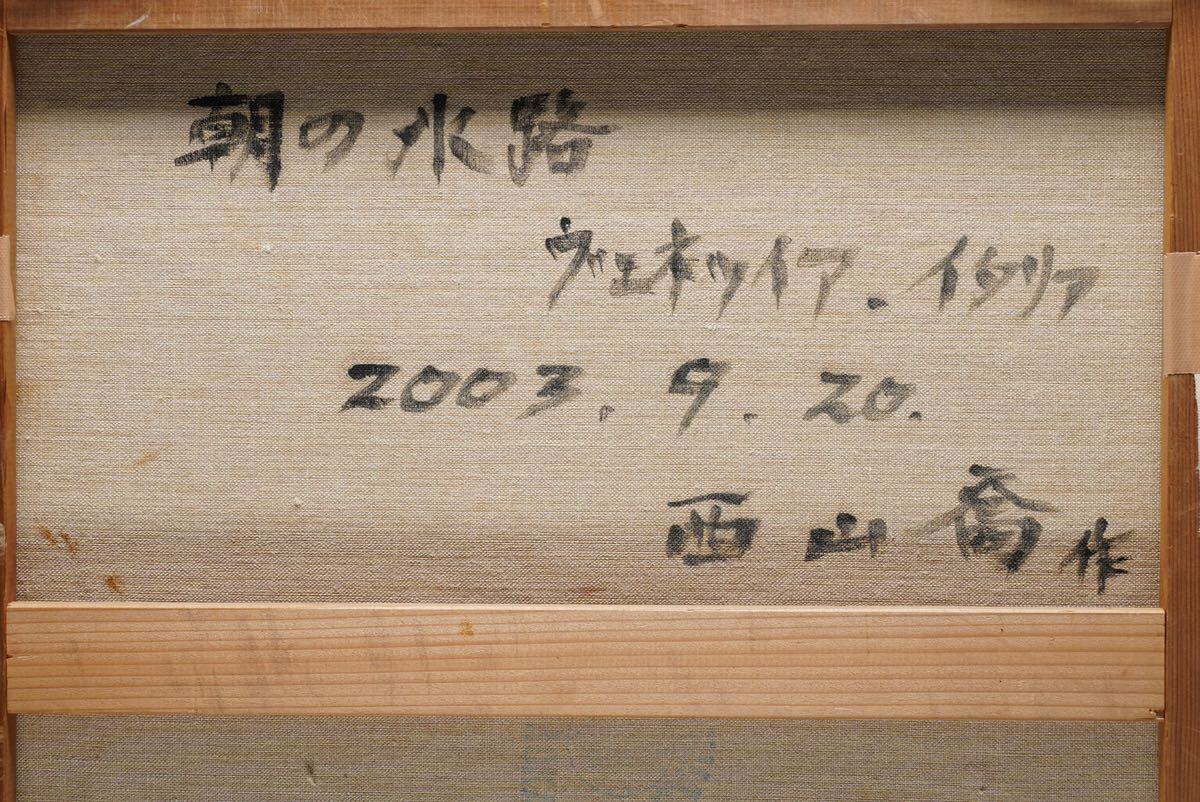 朝の水路
ヴェネツィア.イタリア
2003.9.20.
西山喬作